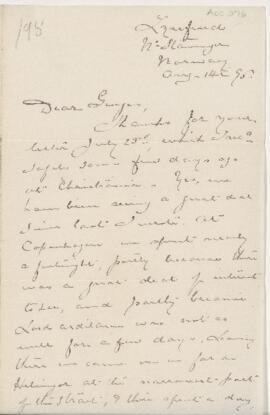 198
Nr. Stavanger
Norway
Aug. 14th 95.
Dear
Thanks for your
letter July 23rd, which I rec'd
some few days ago
at Christiania. Yes, we
have been seeing a great deal
since last I wrote. At
Copenhagen we spent nearly
a fortnight, partly because there
was a great deal of interest
to see, and partly because
Lord was not so
well for a few days. Leaving
there we came on as far as
Helsingor at the narrowest part
of the Strait, & there spent a day